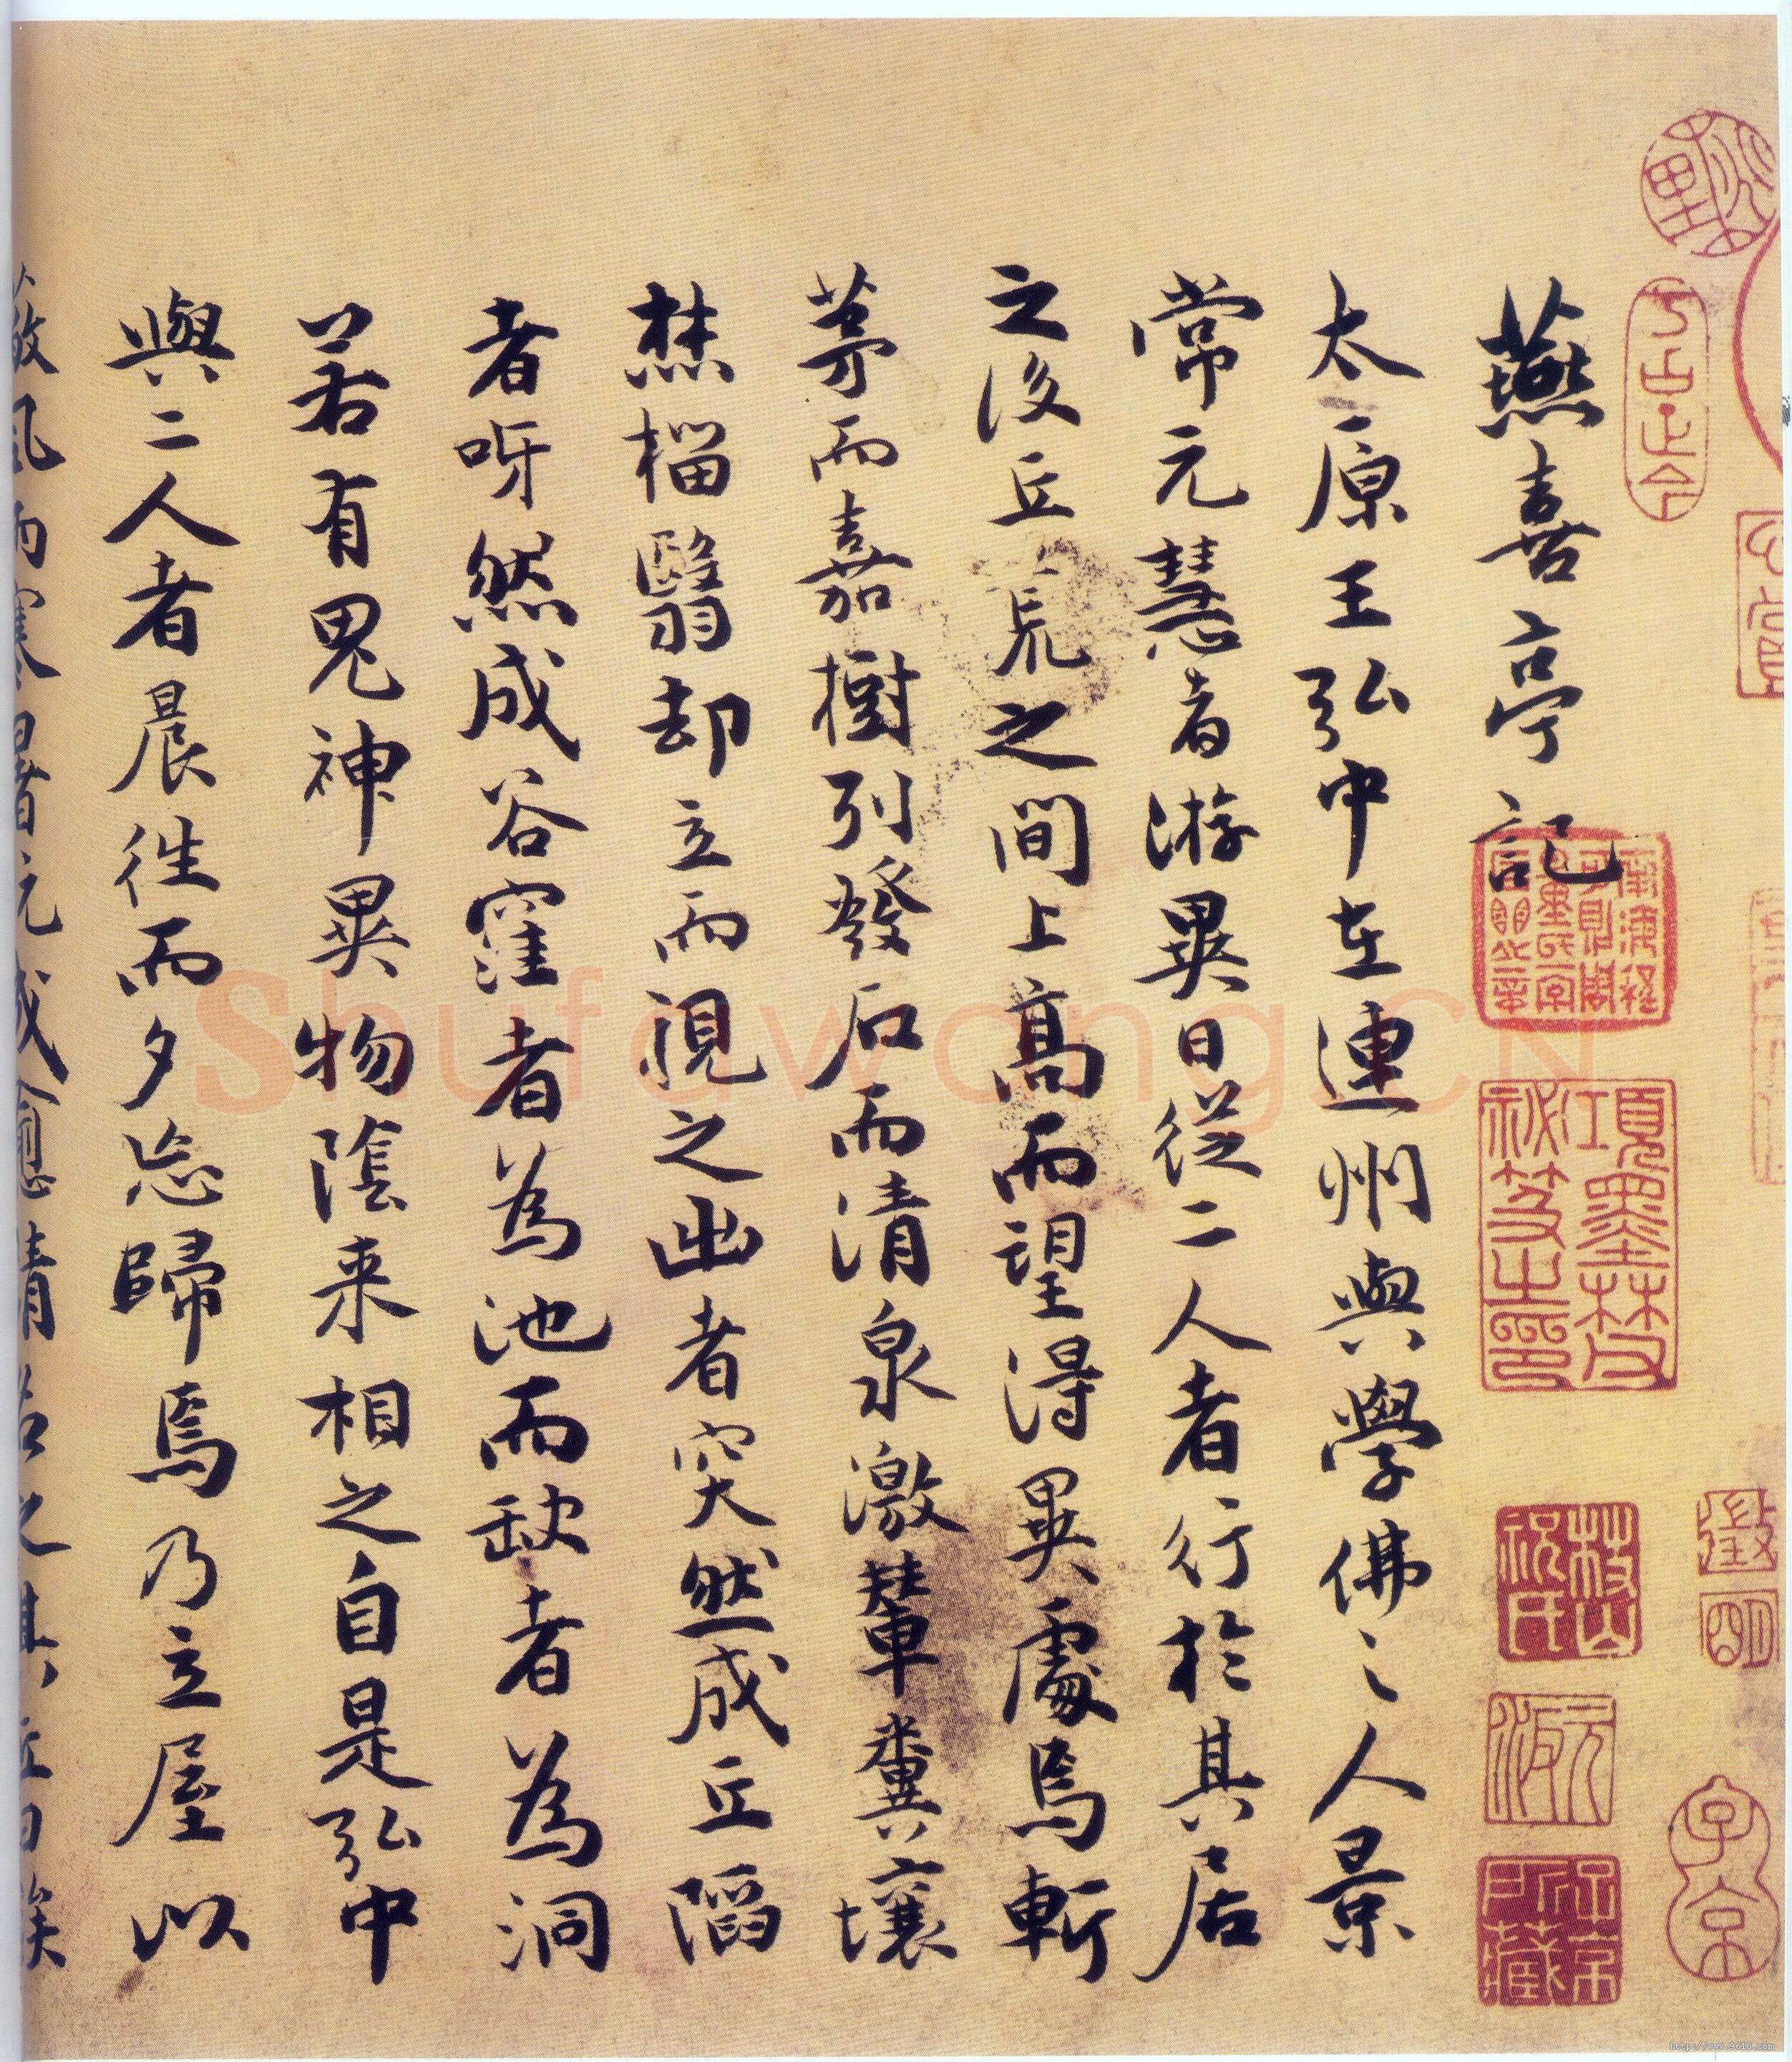 燕喜亭記
太原王弘中在連州與學佛之人景
常元慧者游異日從二人者行於其居
之後丘荒之間上高而望得異處焉斬
茅而嘉樹列發石而清泉激輦糞壤
焚榴翳却立而視之出者突然成丘陷
者呀然成谷窪者為池而缺者為洞
若有鬼神異物陰来相之自是弘中
與二人者晨往而夕忘歸焉乃立屋以
蔽風雨寒暑既成愈請名之其丘曰竢
項墨林父秘笈之印
子京
Shufawang.CN
http://www.9610.com